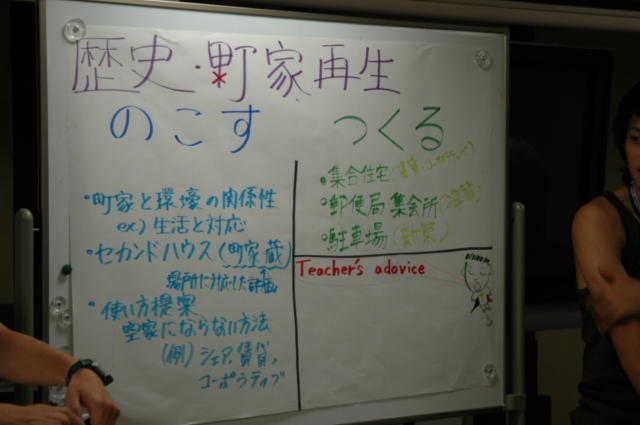 歴史・町家再生
のこす
つくる
・町家と環壕の関係性
ex.) 生活と対応
・セカンドハウス(町家蔵)
場所に対応した計画
・使い方提案
空家にならない方法
(例) シェア、賃貸、
コーポラティブ
・集合住宅(賃貸・コーポラティブ)
・郵便局 集会所
・駐車場
Teacher's adovice